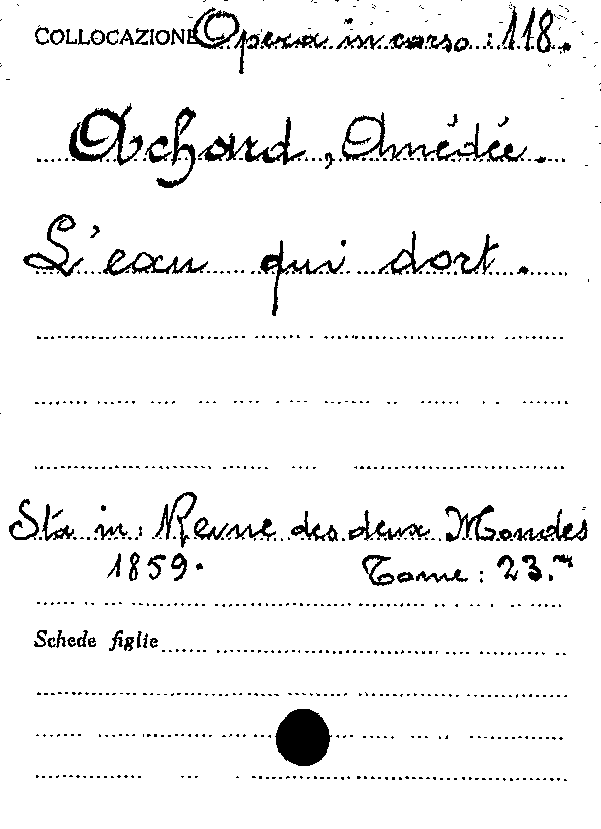 COLLOCAZIONE Opera in corso: 118.
Achard, Amédée.
L'eau qui dort.
Sta in: Revue des deux Mondes
1859. Tome: 23.me
Schede figlie